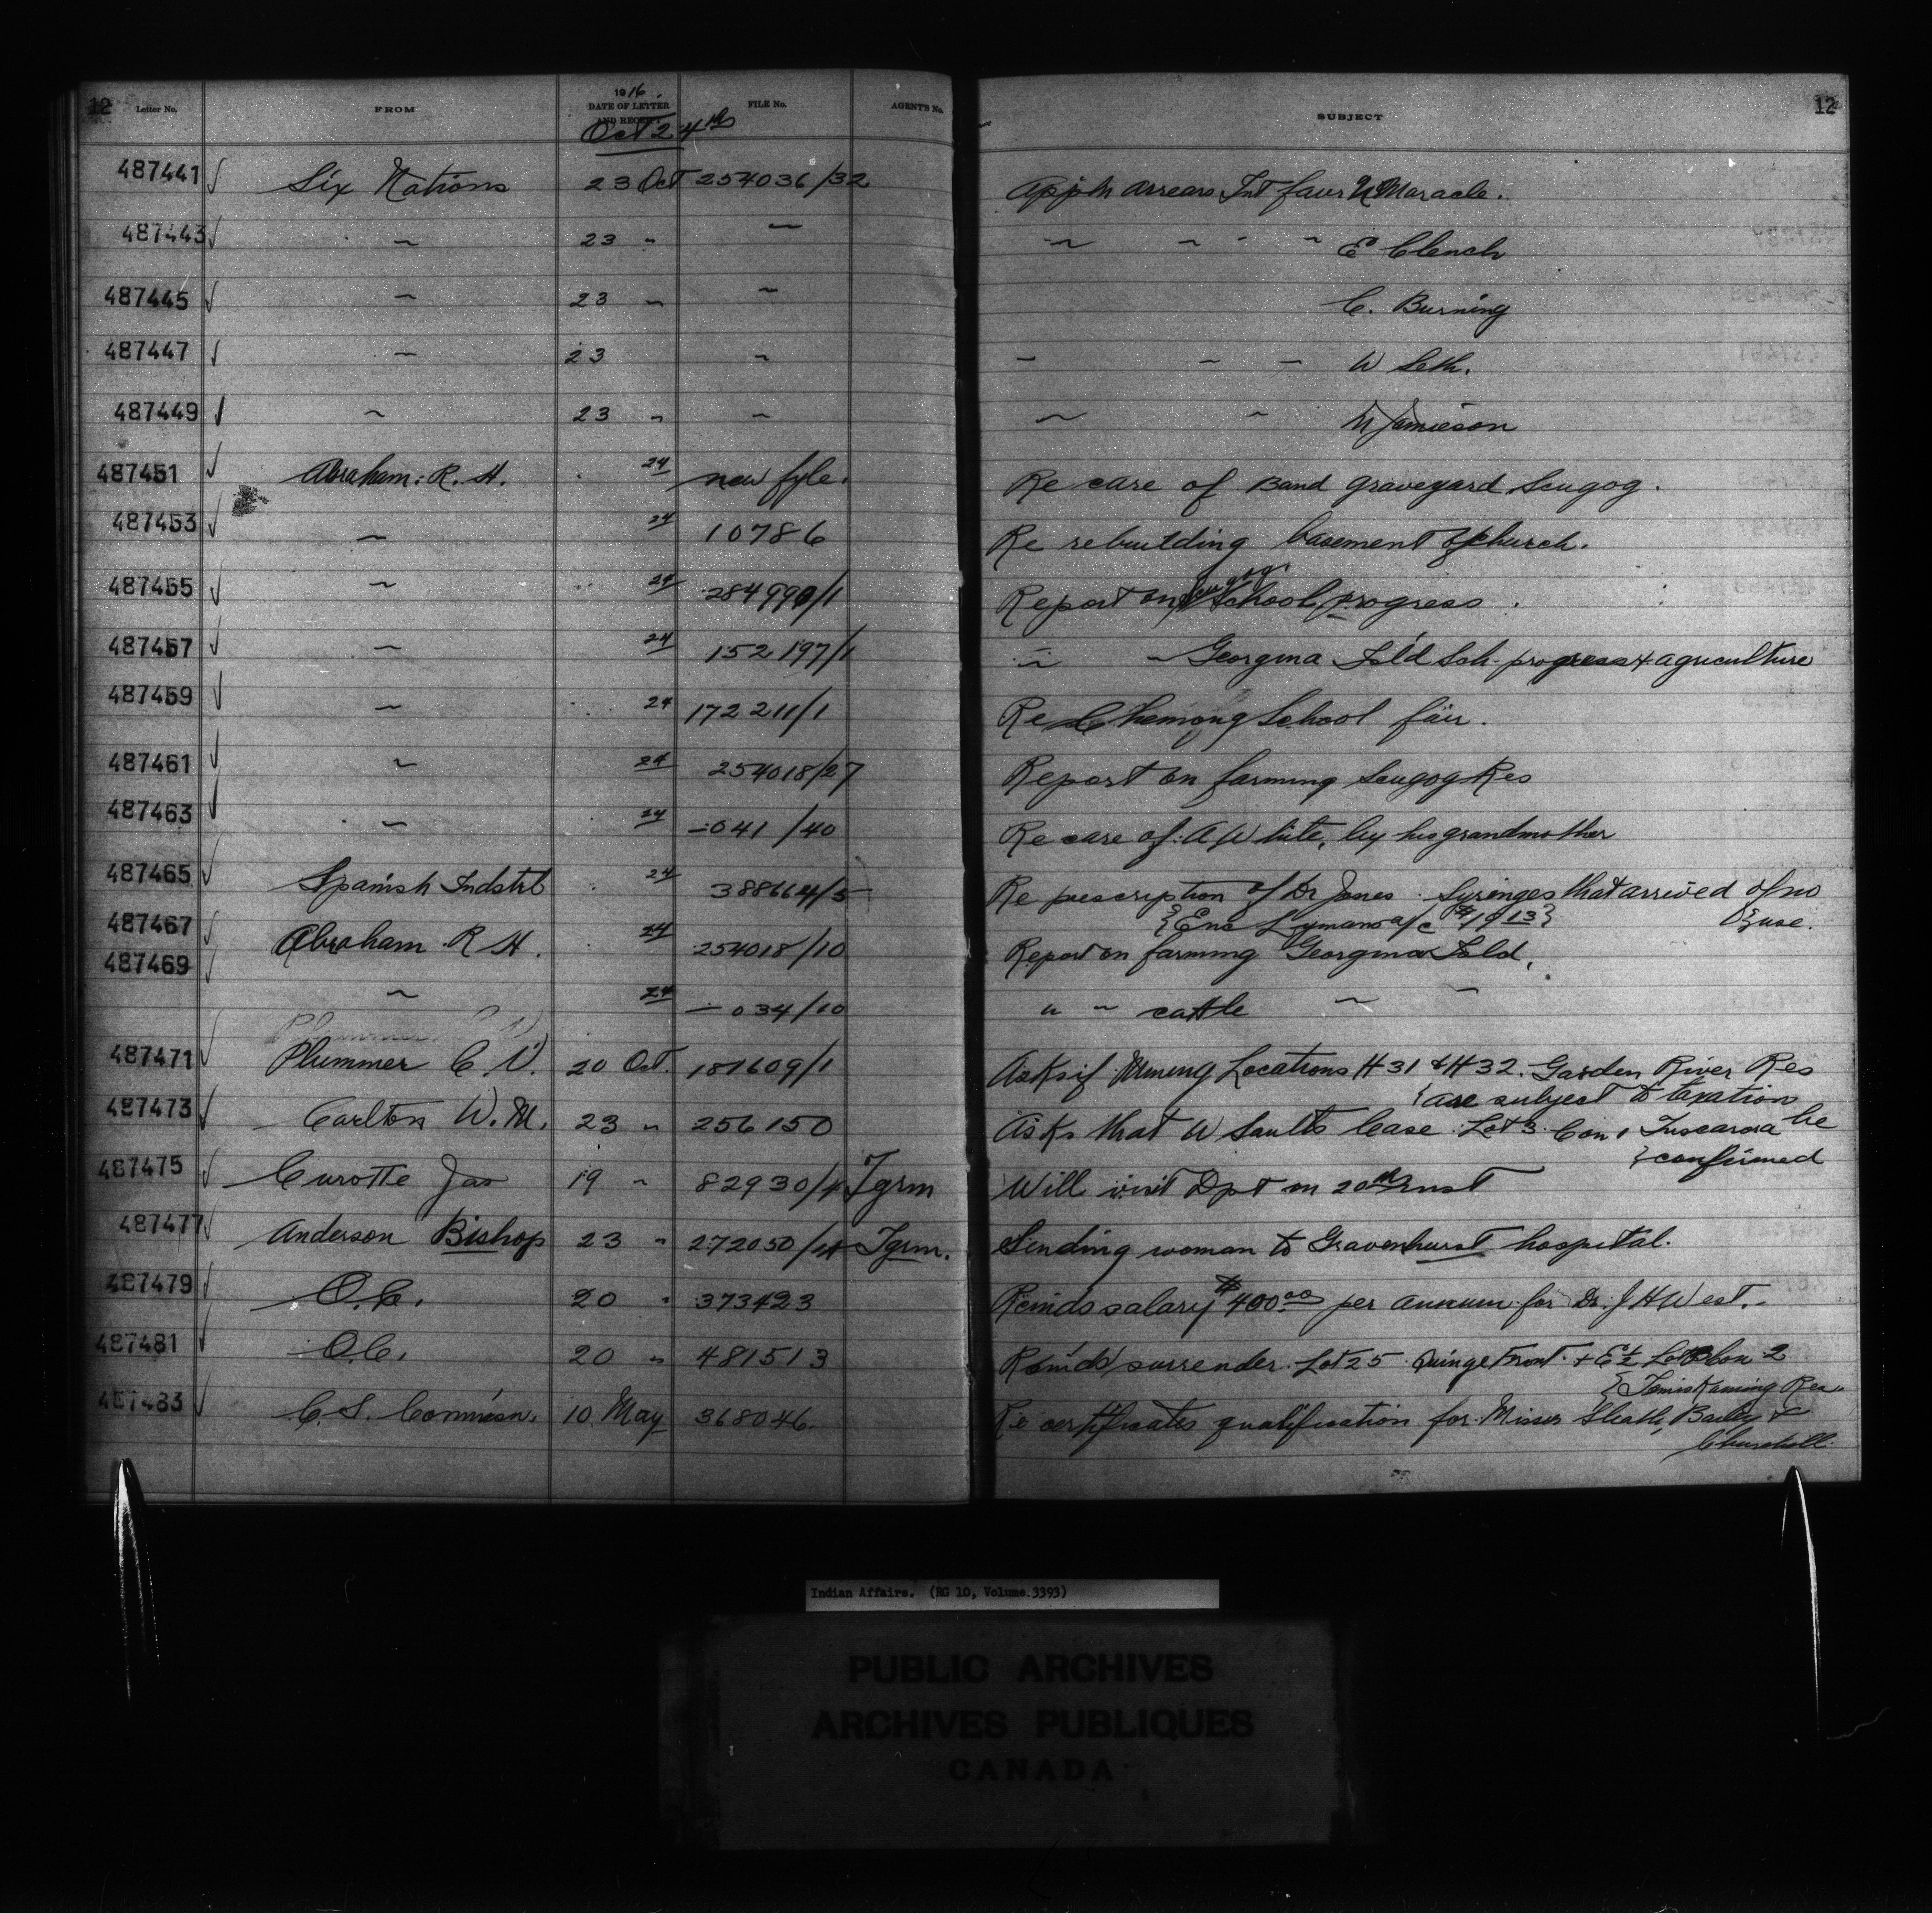 12 Letter No. FROM 1916. DATE OF LETTER AND RECEIPT FILE No. AGENTS No. SUBJECT 12
Oct 24th
487441 Six Nations 23 Oct 254036/32 Appln arrears Int favr Maracle.
487443 " 23 " " " " " " E Clench
487445 " 23 " " C. Burning
487447 " 23 " " " " W Seth.
487449 " 23 " " " " Jamieson
487451 Abraham: R. H. 24 new fyle. Re care of Band graveyard Scugog.
487453 " 24 10786 Re rebuilding basement of church.
487455 " 24 284990/1 Report on Scugog School progress.
487457 " 24 152197/1 " " Georgina Isld Sch. progress & agriculture
487459 " 24 172211/1 Re Chemong School fair.
487461 " 24 254018/27 Report on farming Scugog Res
487463 " 24 – 041/40 Re care of A White, by his grandmother
487465 Spanish Indstrl 24 388664/5 Re prescription of Dr Jones. Syringes that arrived of no
{use.
{Enc Lymans a/c $19 13}
487467 Abraham R H. 24 254018/10 Report on farming Georgina Isld,
487469 " 24 – 034/10 " " cattle " "
487471 Plummer C. V. 20 Oct. 181609/1 Asks if Mining Locations H31 & H32. Garden River Res
{are subject to taxation
487473 Carlton W. M. 23 " 256150 Asks that W Saults lease Lot 3 Con 1 Tuscarora be
{confirmed
487475 Curotte Jas 19 " 82930/4 Tgrm Will visit Dpt on 20th inst
487477 Anderson Bishop 23 " 272050/4 Tgrm. Sending woman to Gravenhurst hospital.
487479 O.C. 20 " 373423 Reinds salary $400.00 per annum for Dr. J H West.
487481 O.C. 20 " 481513 surrender Lot 25 Quinze Front + E ½ Lot Con 2
{Temiskaming Res.
487483 C. S. Commissn. 10 May 368046. Re certificates qualification for Misses Sheath, Bailey &
Churchill.
Indian Affairs. (RG 10, Volume.3393)
PUBLIC ARCHIVES
ARCHIVES PUBLIQUES
CANADA